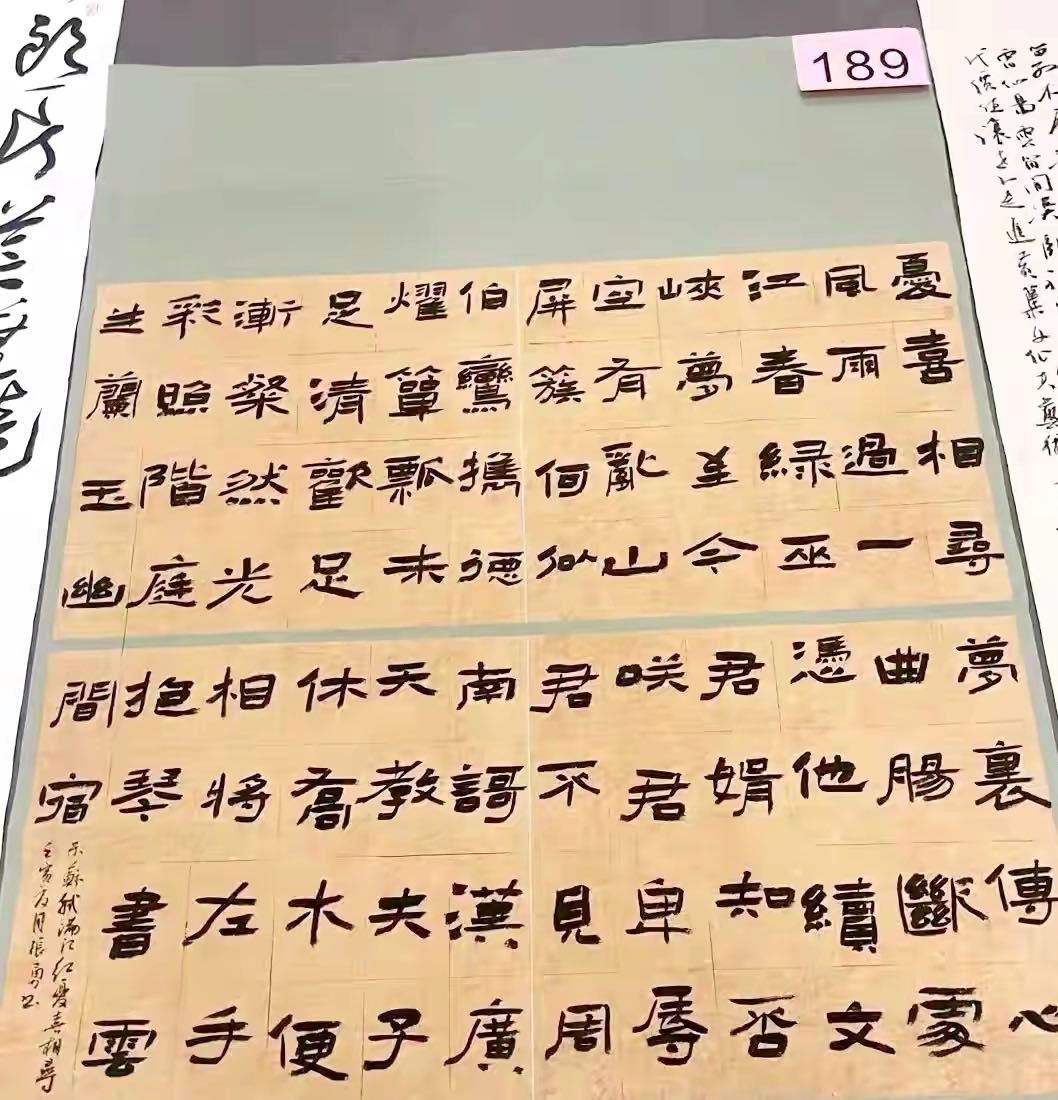 189
憂喜相尋
風雨過一
江春緑巫
峽夢至今
空有亂山
屏簇何似
伯鸞携德
燿簞瓢未
足清歡足
漸粲然光
彩照階庭
生蘭玉幽
夢裏傳心
曲腸斷處
憑他續文
君婿知否
咲君卑辱
君不見周
南謌漢廣
天教夫子
休喬木便
相將左手
抱琴書雲
間宿
宋蘇軾滿江紅憂喜相尋
壬寅月張勇書